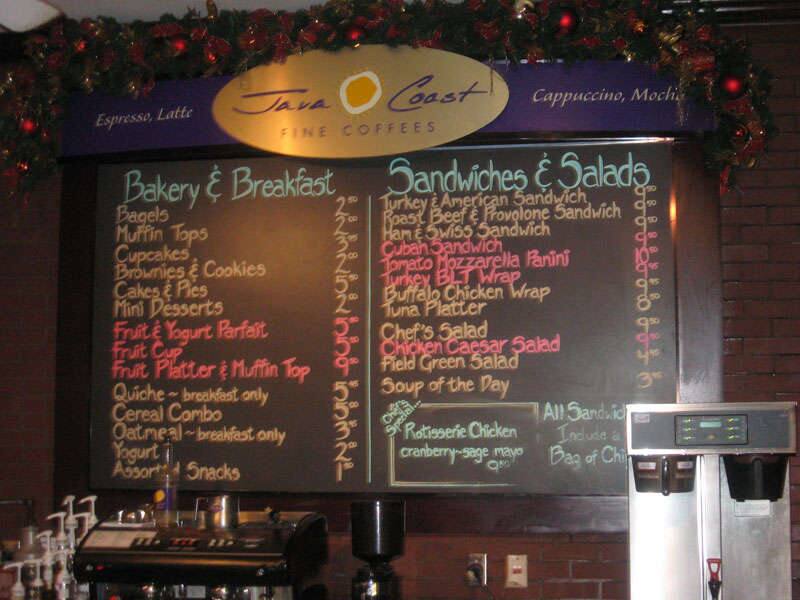 Espresso, Latte
Java Coast
FINE COFFEES
Cappuccino, Mocha
Bakery & Breakfast
Bagels 2.50
Muffin Tops 2.
Cupcakes 3.
Brownies & Cookies 2.
Cakes & Pies 5.
Mini Desserts 2.
Fruit & Yogurt Parfait 5.
Fruit Cup 5.
Fruit Platter & Muffin Top 9.
Quiche ~ breakfast only 5.
Cereal Combo 5.
Oatmeal ~ breakfast only 3.
Yogurt 2.
Assorted Snacks 1.
Sandwiches & Salads
Turkey & American Sandwich 9.
Roast Beef & Provolone Sandwich 9.
Ham & Swiss Sandwich 9.
Cuban Sandwich 9.
Tomato Mozzarella Panini 10.
Turkey BLT Wrap 9.
Buffalo Chicken Wrap 9.
Tuna Platter 8.
Chef's Salad 9.
Chicken Caesar Salad 9.
Field Green Salad 4.
Soup of the Day 3.
Chef's
Special...
Rotisserie Chicken
cranberry~sage mayo
9.50
All Sandwic
Include a
Bag of Chi